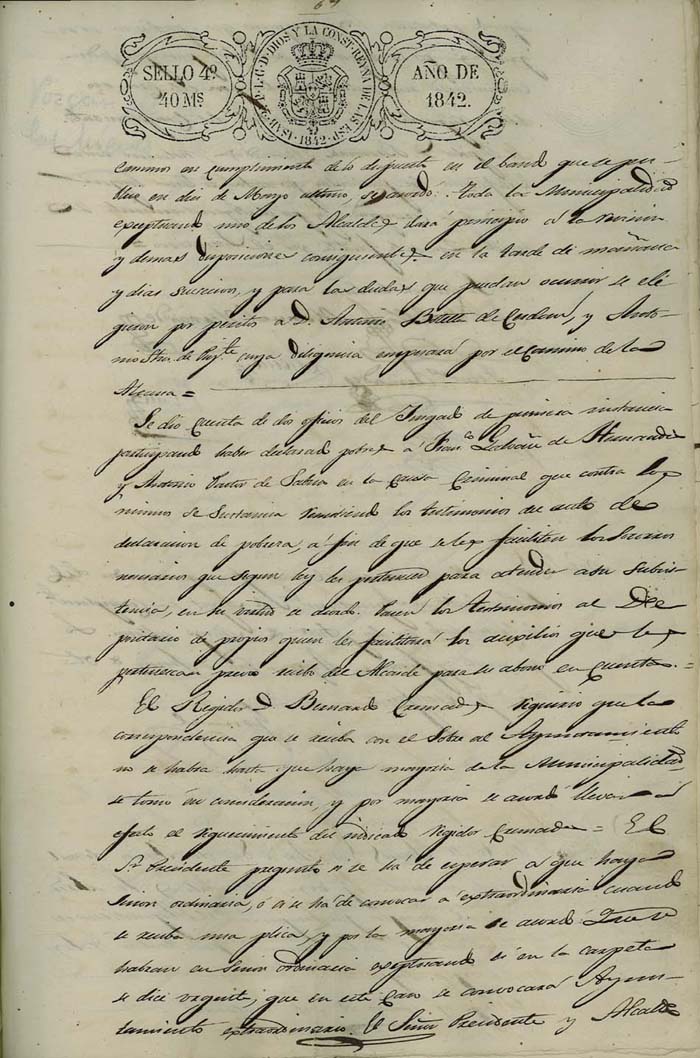 SELLO 4º
40 Ms
ISABEL 2ª P. L. G. D. DIOS Y LA CONST. REYNA DE LAS ESP.
1842
AÑO DE
1842.
caminos en cumplimiento de lo dispuesto en el bando que se pu-
blicó en dias de Marzo ultimo, se acordó: toda la Municipalidad
exceptuando uno de los Alcaldes dará principio á la revision
y demas disposiciones consiguientes en la tarde de mañana
y dias sucesivos, y para las dudas que puedan ocurrir se eli-
gieron por peritos a D. Antonio de y Anto-
nio cuya diligencia empesará por el Camino de la
=
Se dio cuenta de dos oficios del Juzgado de primera instancia
participando haber declarado pobres a Franco de Hernandez
y Antonio Pastor de en la Causa Criminal que contra los
mismos se sustancia remitiendo los testimonios del auto de
declaracion de pobresa, á fin de que se les faciliten los Socorros
necesarios que segun ley les pertenece para atender a su subsis-
tencia, en su vista se acordó: Pasen los testimonios al De-
positario de propios quien les facilitará los auxilios que les
pertenescan previo recibo del Alcaide para su abono en cuentas. =
El Regidor D. Bernardo Cremades requirio que la
correspondencia que se reciba con el Sobre al Ayuntamiento
no se habra hasta que haya mayoria de la Municipalidad,
se tomó en consideracion, y por mayoria se acordó llevar á
efecto el requerimiento del indicado Regidor Cremades = El
Sr. Presidente preguntó si se há de esperar a que haya
Sesion ordinaria, ó si se há de convocar a extraordinaria cuando
se reciba una plica, y por la mayoria se acordó: Que se
habran en Sesion ordinaria exceptuando si en la carpeta
se dice urgente, que en este caso se convocará Ayun-
tamiento extraordinario. El Señor Presidente y Alcalde